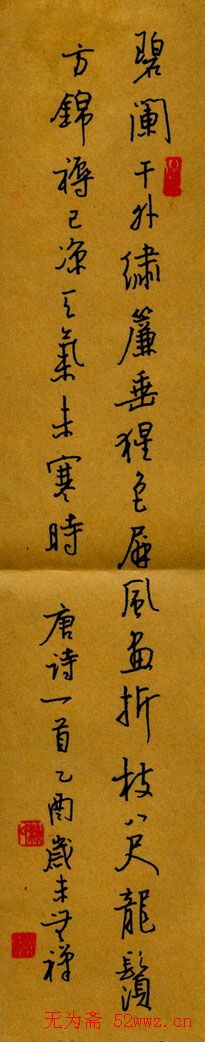 碧阑干外绣簾垂猩色屏风画折枝八尺龍鬚
方錦褥已凉天氣未寒時
唐诗一首乙酉歲末無禅
无为斋 52wwz.cn